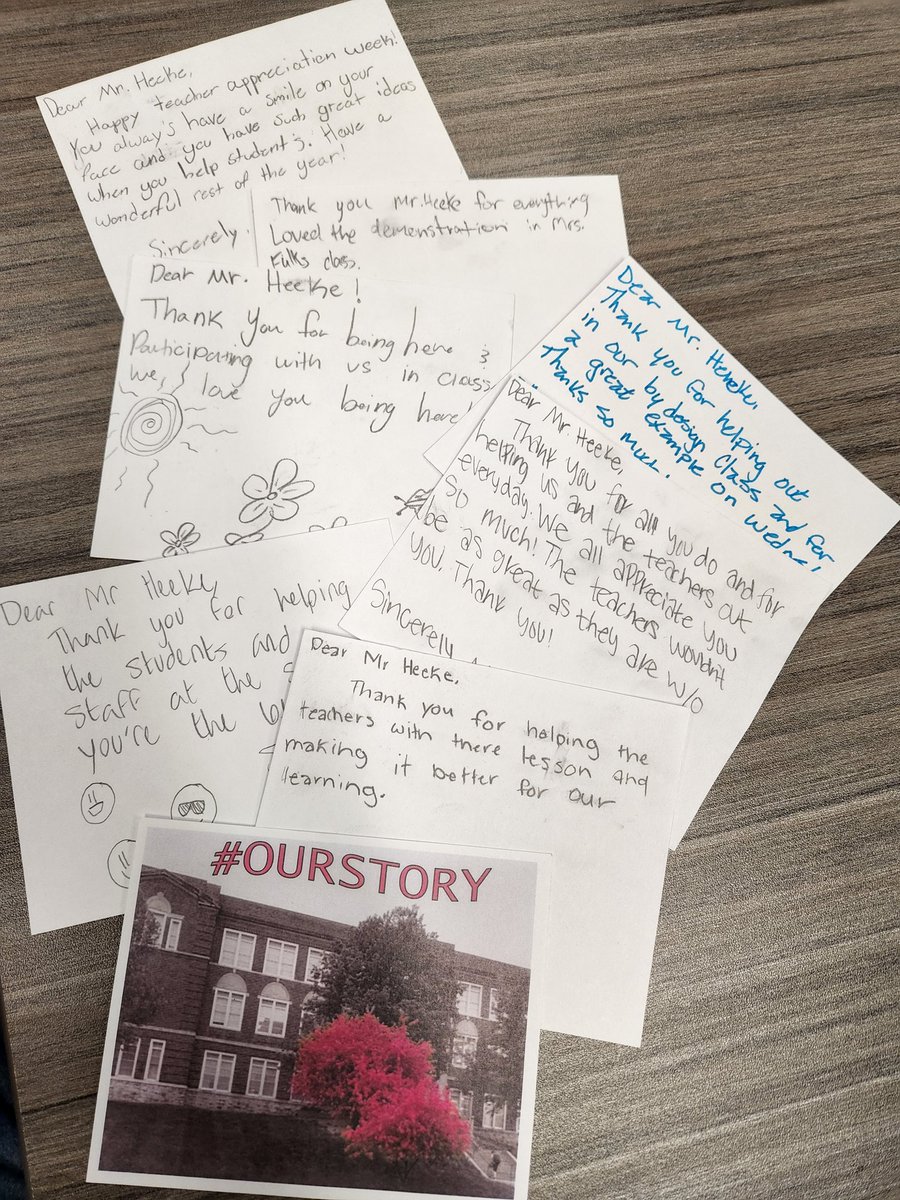 Dear Mr. Heeke,
Happy teacher appreciation week!
You alway's have a smile on your
face and you have such great ideas
when you help student's. Have a
wonderful rest of the year!
Sincerely,
Thank you Mr. Heeke for everything
Loved the demenstration in Mrs.
Fulks class.
Dear Mr. Heeke!
Thank you for being here &
Participating with us in class
We, love you being here!
Dear Mr. Heneke,
Thank you for helping out
in our by design class and for
a great example on Wedne
Thanks so much.
Dear Mr. Heeke,
Thank you for all you do and for
helping us and the teachers out
everyday. We all appreciate you
so much! The teachers wouldn't
be as great as they are w/o
you. Thank you!
Sincerely
Dear Mr Heeky,
Thank you for helping
the students and
staff at the
you're the
Dear Mr Heeke,
Thank you for helping the
teachers with there lesson and
making it better for our
learning.
#OURSTORY